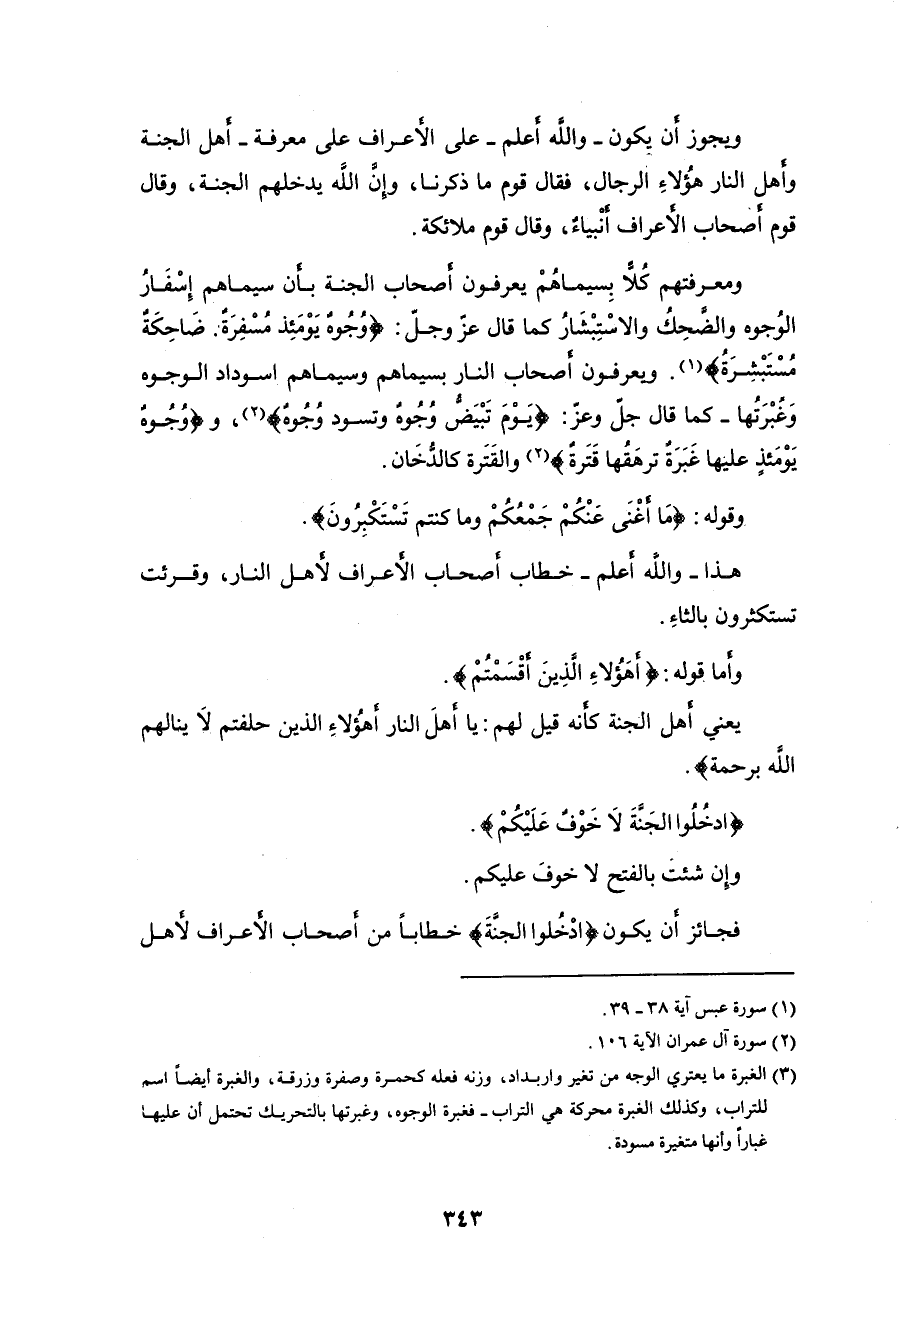 ويجوز أن يكون - واللَّه أعلم - على الأعراف على معرفة - أهل الجنة
وأهل النار هؤلاءِ الرجال، فقال قوم ما ذكرنا، وإنَّ اللَّه يدخلهم الجنة، وقال
قوم أصحاب الأعراف أنْبياءُ، وقال قوم ملائكة.
ومعرفتهم كُلًّا بِسيماهُمْ يعرفون أصحاب الجنة بأن سيماهم إسْفَارُ
الوُجوه والضَّحِكُ والاسْتِبْشَارُ كما قال عزّ وجلّ: ﴿وُجُوهٌ يَوْمَئِذ مُسْفِرَةٌ. ضَاحِكَةٌ
مُسْتَبْشِرَةٌ﴾(١). ويعرفون أصحاب النار بسيماهم وسيماهم اسوداد الوجوه
وَغُبْرَتُها - كما قال جلّ وعزّ: ﴿يَوْمَ تَبْيَضُّ وُجُوهٌ وتسود وُجُوهٌ﴾(٢)، و ﴿وُجُوهٌ
يَوْمَئِذٍ عليها غَبَرَةٌ ترهَقُها قَتَرةٌ﴾(٢) والقَتَرة كالدُّخَان.
وقوله: ﴿مَا أَغْنَى عَنْكُمْ جَمْعُكُمْ وما كنتم تَسْتَكْبِرُونَ﴾.
هذا - واللَّه أعلم - خطاب أصحاب الأعراف لأهل النار، وقرئت
تستكثرون بالثاءِ.
وأما قوله: ﴿أَهَؤُلاءِ الَّذِينَ أَقْسَمْتُمْ﴾.
يعني أهل الجنة كأنه قيل لهم: يا أهلَ النار أهؤلاءِ الذين حلفتم لَا ينالهم
اللَّه برحمة﴾.
﴿ادخُلُوا الجَنَّةَ لَا خَوْفٌ عَلَيْكُمْ﴾.
وإن شئتَ بالفتح لا خوفَ عليكم.
فجائز أن يكون ﴿ادْخُلوا الجنَّةَ﴾ خطاباً من أصحاب الأعراف لأهل
(١) سورة عبس آية ٣٨ - ٣٩.
(٢) سورة آل عمران الآية ١٠٦.
(٣) الغبرة ما يعتري الوجه من تغير واربداد، وزنه فعله كحمرة وصفرة وزرقة، والغبرة أيضاً اسم
للتراب، وكذلك الغبرة محركة هي التراب - فغبرة الوجوه، وغبرتها بالتحريك تحتمل أن عليها
غباراً وأنها متغيرة مسودة.
٣٤٣